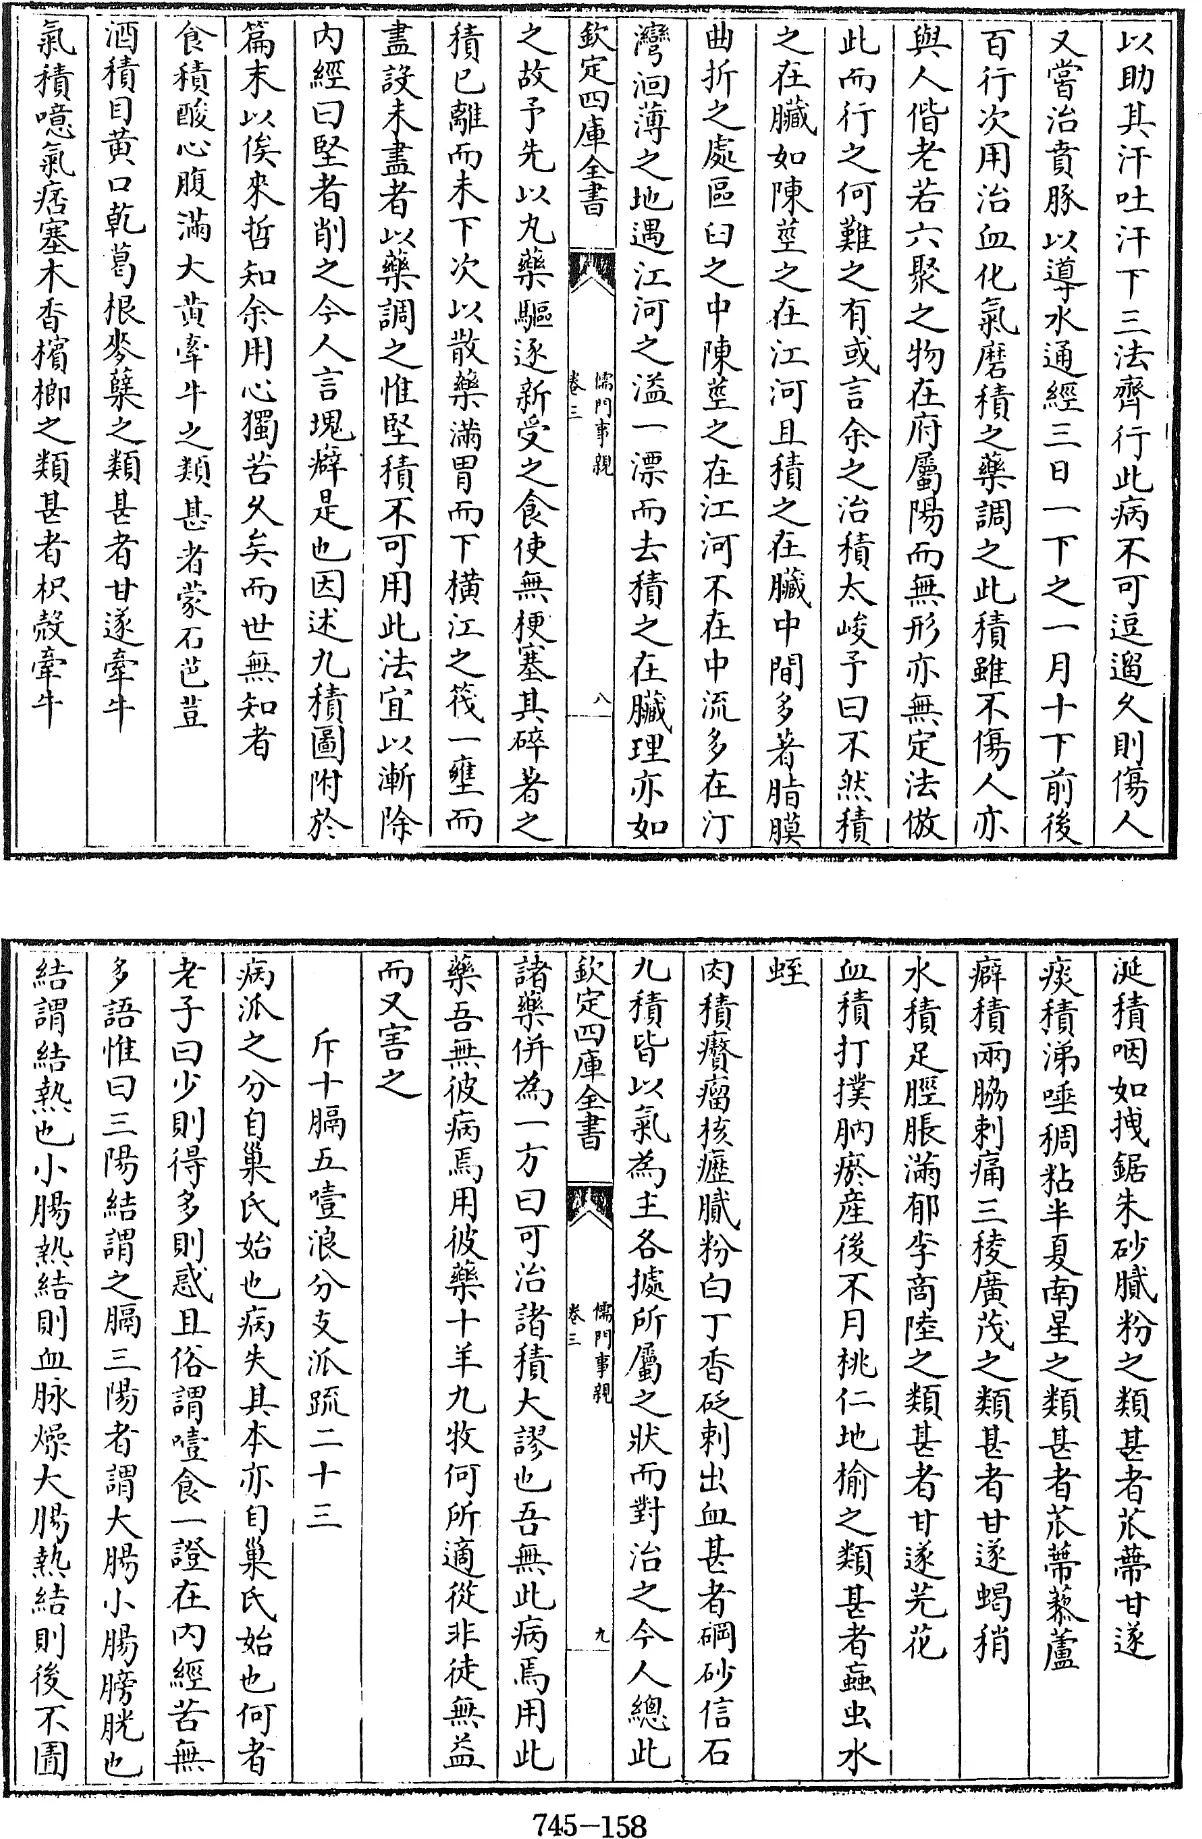 以助其汗吐汗下三法齊行此病不可逗遛久則傷人
又嘗治賁豚以導水通經三日一下之一月十下前後
百行次用治血化氣磨積之藥調之此積雖不傷人亦
與人偕老若六聚之物在府屬陽而無形亦無定法倣
此而行之何難之有或言余之治積太峻予曰不然積
之在臟如陳莝之在江河且積之在臟中間多著脂膜
曲折之處區臼之中陳莝之在江河不在中流多在汀
灣洄薄之地遇江河之溢一漂而去積之在臟理亦如
欽定四庫全書
儒門事親
卷三
八
之故予先以丸藥驅逐新受之食使無梗塞其碎著之
積已離而未下次以散藥滿胃而下橫江之筏一壅而
盡設未盡者以藥調之惟堅積不可用此法宜以漸除
內經曰堅者削之今人言塊癖是也因述九積圖附於
篇末以俟來哲知余用心獨苦久矣而世無知者
食積酸心腹滿大黃牽牛之類甚者蒙石芭荳
酒積目黃口乾葛根麥蘗之類甚者甘遂牽牛
氣積噫氣痞塞木香檳榔之類甚者枳殼牽牛
涎積咽如拽鋸朱砂膩粉之類甚者苽蔕甘遂
痰積涕唾稠粘半夏南星之類甚者苽蔕藜蘆
癖積兩脇刺痛三稜廣茂之類甚者甘遂蝎稍
水積足脛脹滿郁李商陸之類甚者甘遂芫花
血積打撲肭瘀産後不月桃仁地榆之類甚者蝱虫水
蛭
肉積癭瘤核癧膩粉白丁香砭刺出血甚者硇砂信石
九積皆以氣為主各據所屬之狀而對治之今人總此
欽定四庫全書
儒門事親
卷三
九
諸藥併為一方曰可治諸積大謬也吾無此病焉用此
藥吾無彼病焉用彼藥十羊九牧何所適從非徒無益
而又害之
斥十膈五噎浪分支派疏二十三
病派之分自巢氏始也病失其本亦自巢氏始也何者
老子曰少則得多則惑且俗謂噎食一證在內經苦無
多語惟曰三陽結謂之膈三陽者謂大腸小腸膀胱也
結謂結熱也小腸熱結則血脉燥大腸熱結則後不圊
745-158